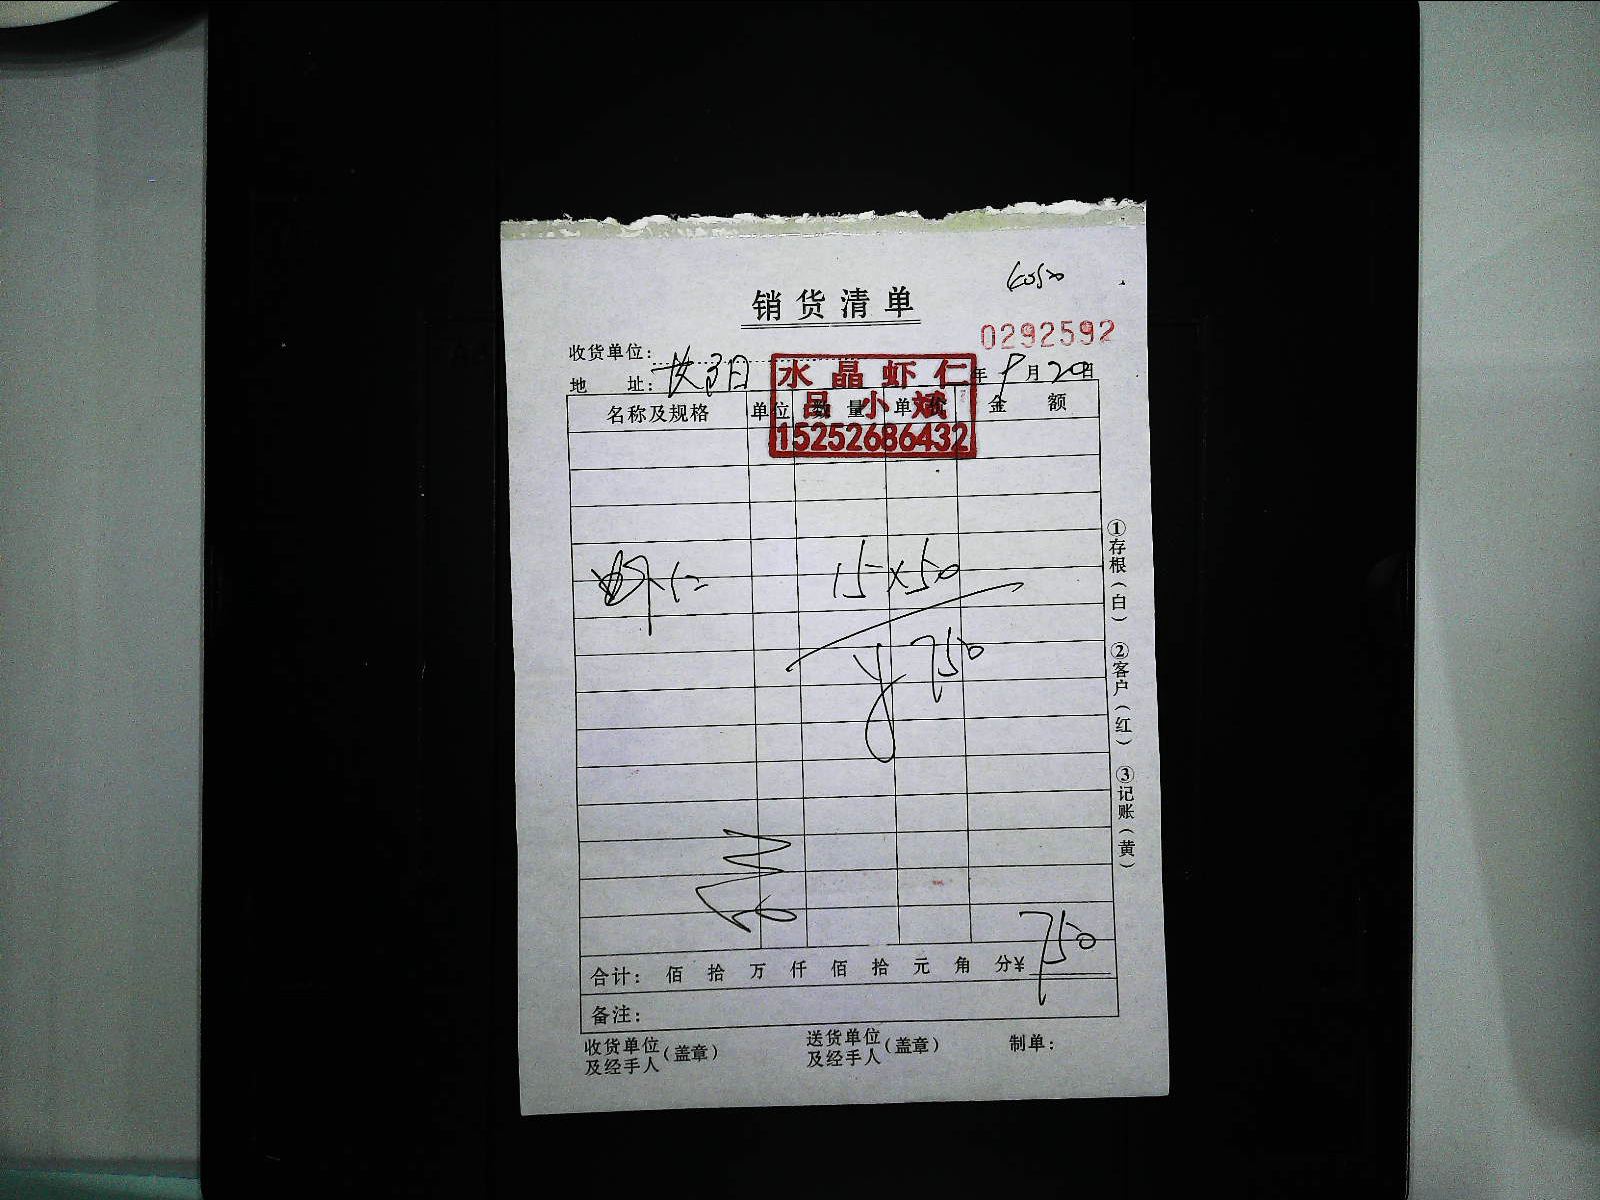 销货清单
0292592
收货单位：
地 址： 年 9 月 20 日
水晶虾仁
吕小娥
15252686432
名称及规格 单位 数量 单价 金 额
虾仁 15×50
¥750
合计： 佰 拾 万 仟 佰 拾 元 角 分¥ 750
备注：
收货单位及经手人（盖章） 送货单位及经手人（盖章） 制单：
①存根（白） ②客户（红） ③记账（黄）